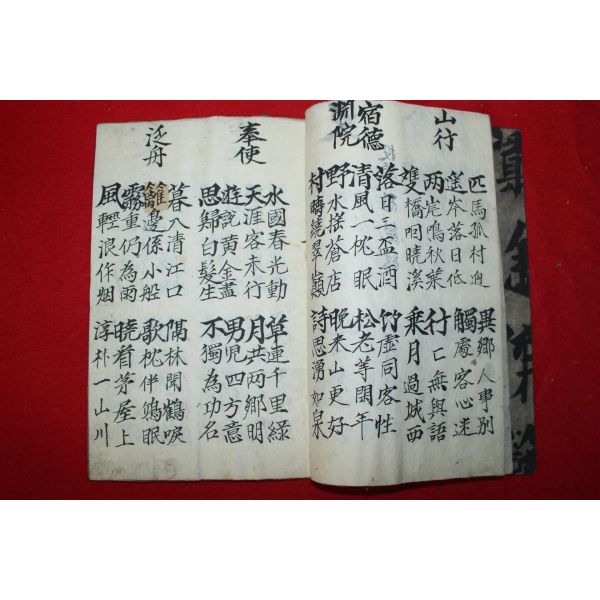 山行
匹馬孤村迥 異鄉人事別
落日低 觸處客心迷
兩崖鳴秋葉 行〻無與語
隻橋咽曉溪 乘月過城西
宿德
淵院
落日三盃酒 竹虛同客性
清風一枕眠 松老等閑年
野水搖蒼店 晚來山更好
村時繞翠巓 詩思湧如泉
奉使
水國春光動 草連千里綠
天涯客未行 月共両鄉明
遊說黃金盡 男児四方意
思歸白髮生 不獨為功名
泛舟
暮入清江口 隔林聞鶴唳
籬邊係小船 歌枕伴鷗眠
霧重仍為雨 曉看茅屋上
風輕浪作烟 淳朴一山川